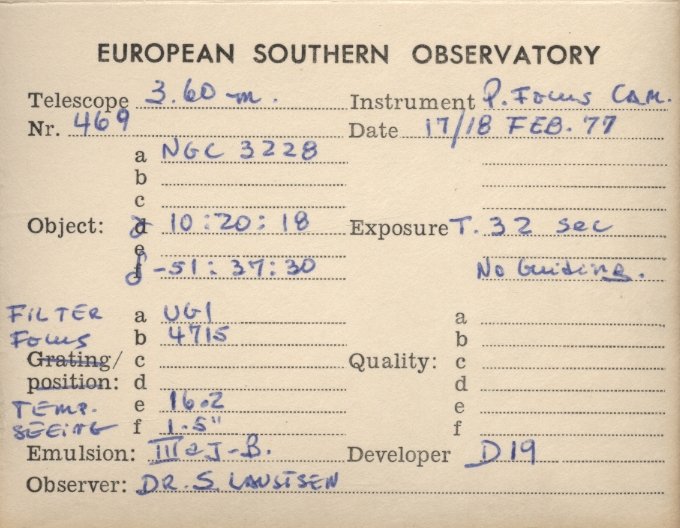 EUROPEAN SOUTHERN OBSERVATORY
Telescope 3.60 m. Instrument P. Focus CAM.
Nr. 469 Date 17/18 FEB. 77
a NGC 3228
b
c
Object: d α 10:20:18 Exposure T. 32 sec
e
f δ -51:37:30 No Guiding.
FILTER a UG1 a
Focus b 4715 b
Grating/ c Quality: c
position: d d
TEMP. e 16.2 e
SEEING f 1.5" f
Emulsion: IIIaJ-B. Developer D19
Observer: DR. S. LAUSTSEN